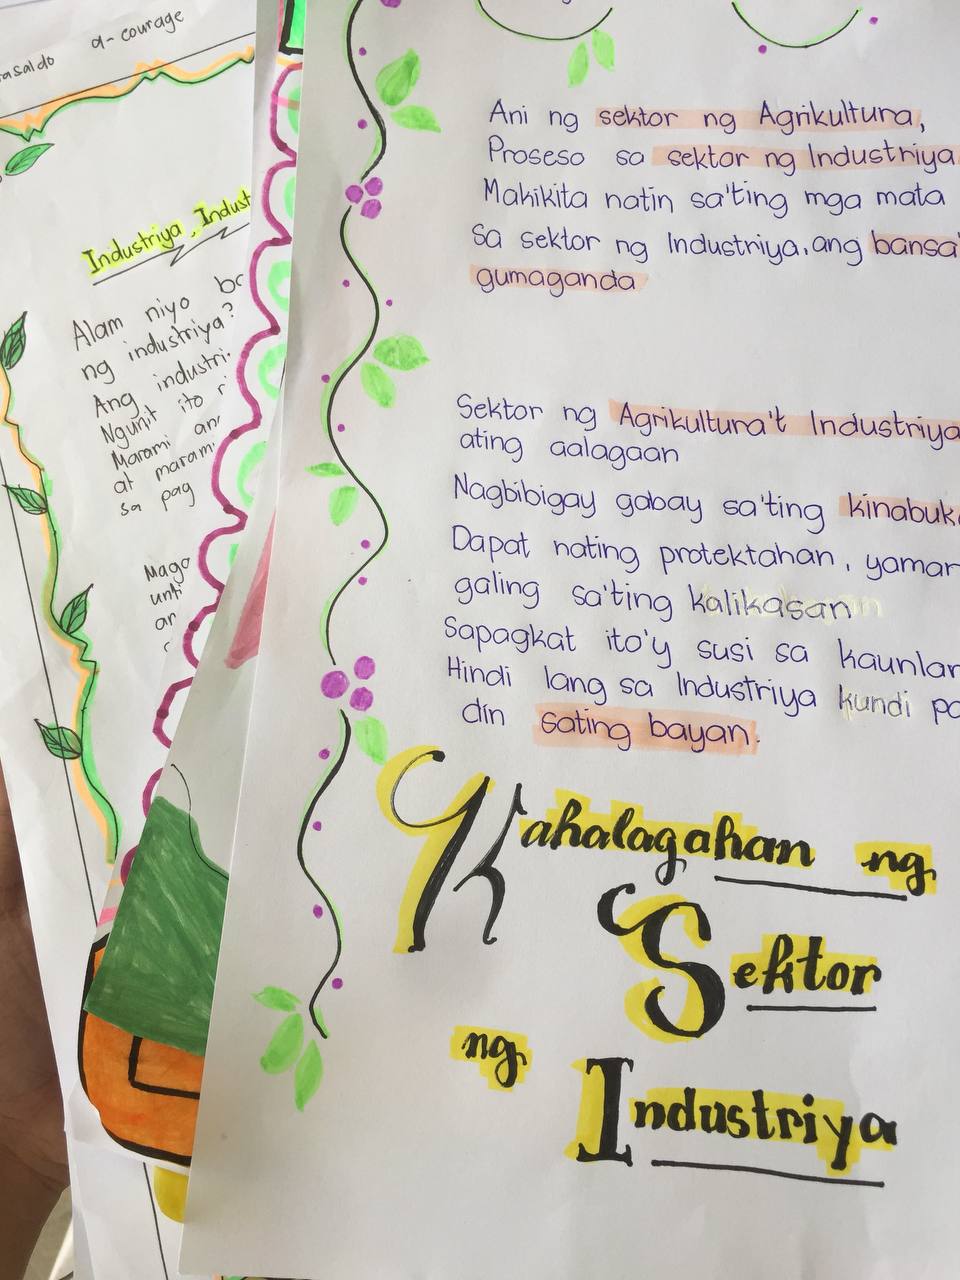 a- courage
Industriya, Indust
Alam niyo
ng industriya?
Ang industri
Ngunit ito
Marami an
at maram
sa pag
Mago
unti
an
Ani ng sektor ng Agrikultura,
Proseso sa sektor ng Industriya
Makikita natin sa'ting mga mata
Sa sektor ng Industriya, ang bansa'
gumaganda
Sektor ng Agrikultura't Industriya
ating aalagaan
Nagbibigay gabay sa'ting kinabuk
Dapat nating protektahan, yaman
galing sa'ting kalikasan
Sapagkat ito'y susi sa kaunlar
Hindi lang sa Industriya kundi pa
din sating bayan.
Kahalagahan ng
Sektor
ng
Industriya